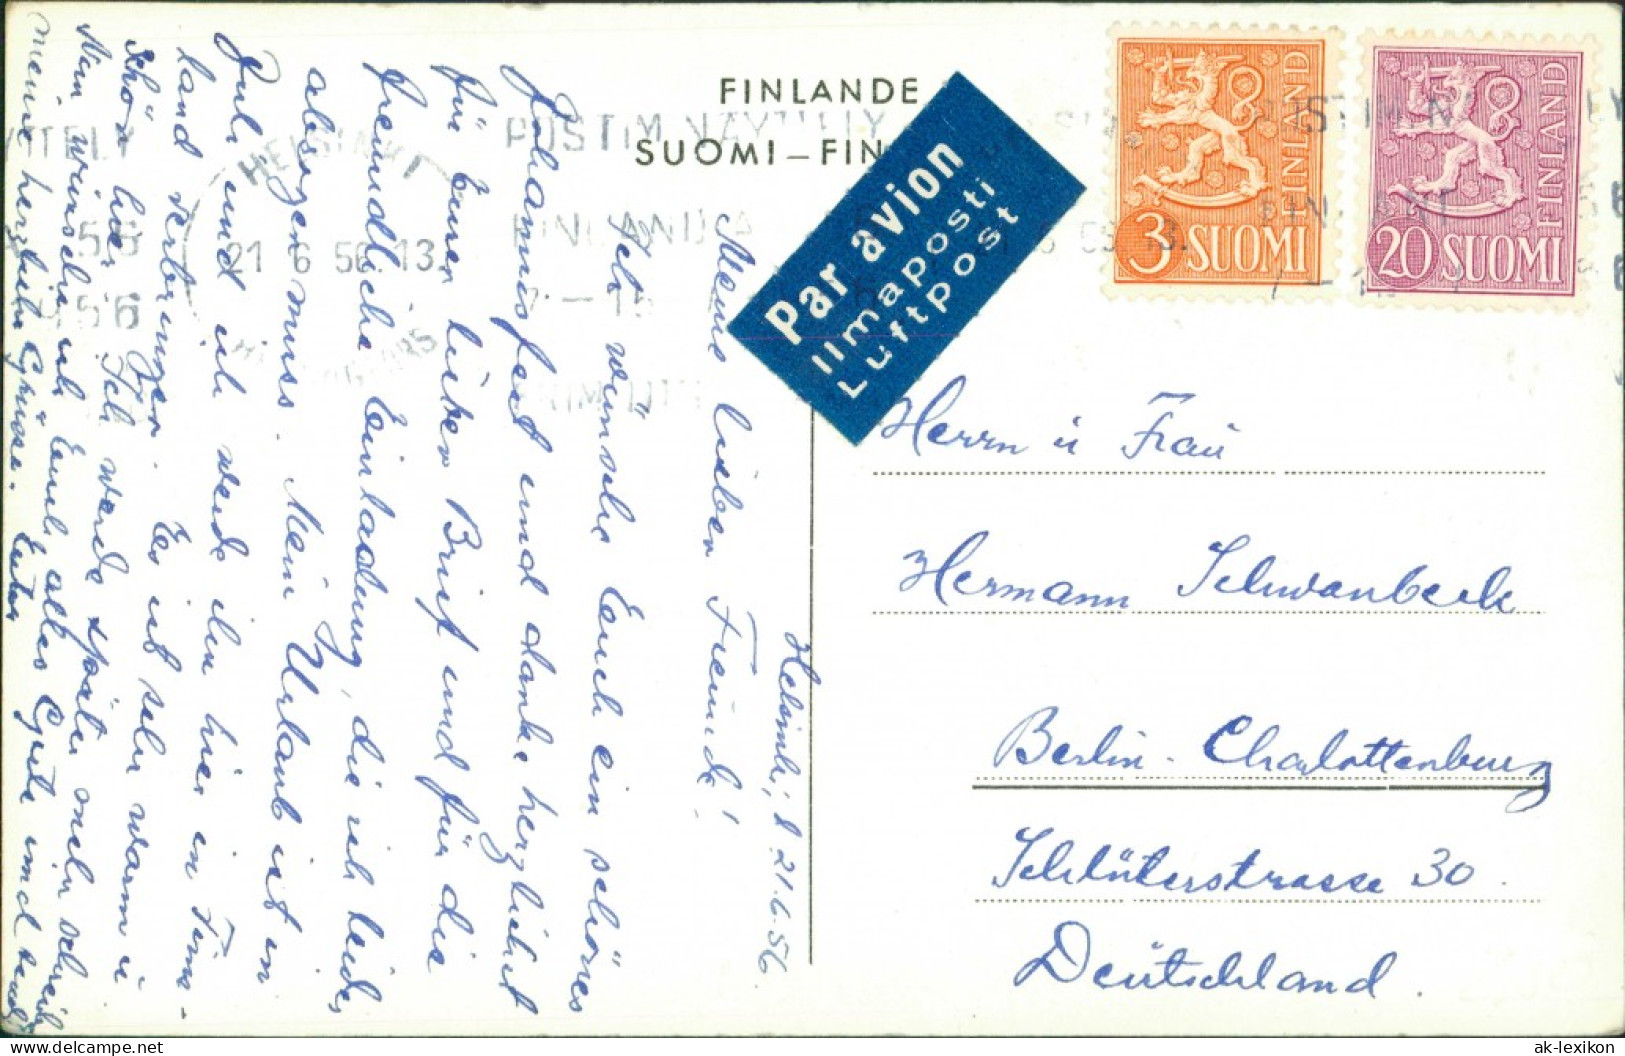 FINLANDE
SUOMI – FIN
Par avion
Ilmaposti
Luftpost
3 SUOMI
FINLAND
20 SUOMI
FINLAND
HELSINKI
21 6 56. 13.
HELSINGFORS
POSTIM. NÄYTTELY
FINLANDIA
Helsinki, d 21.6.56
Meine lieben Freunde!
Ich wünsche Euch ein schönes
Johannisfest und danke herzlichst
für Euren lieben Brief und für die
freundliche Einladung, die ich leider
absagen muss. Mein Urlaub ist in
Juli und ich werde ihn hier in Finn-
land verbringen. Es ist sehr warm u
schön hier. Ich werde später mehr schreib
Nun wünsche ich Euch alles Gute und sende
meine herzlichen Grüsse. Euer
Herrn u Frau
Hermann Schwanbeck
Berlin - Charlottenburg
Schlüterstrasse 30.
Deutschland.
ak-lexikon
delcampe.net